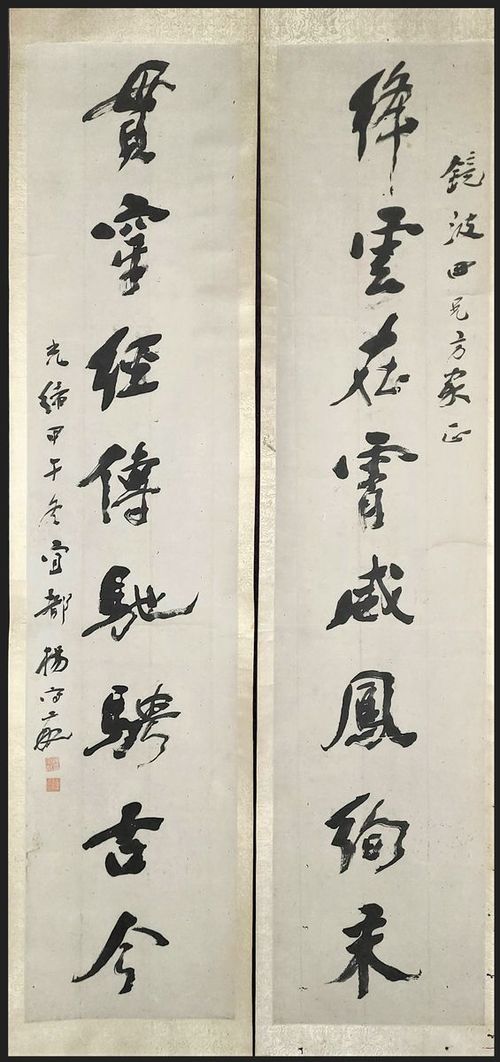 鏡波四兄方家正
絳雲在霄威鳳絢采
貫穿經傳馳騁古今
光緒甲午冬宜都楊守敬